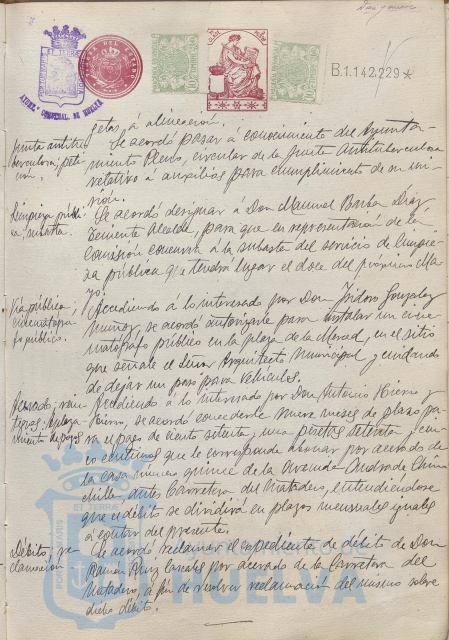 B.1.142.229*
AYUNT. PROVINCIAL DE HUELVA
jetas á alineación.
Junta antitu-
berculosa, peti-
ción.
Se acordó pasar á conocimiento del Ayunta-
miento Pleno, circular de la Junta Antituberculosa
relativo á auxilios para cumplimiento de su mi-
sión.
Limpieza públi-
ca, subasta.
Se acordó designar á Don Manuel Barba Díaz
Teniente Alcalde, para que en representación de la
Comisión concurra á la subasta del servicio de limpie-
za pública que tendrá lugar el doce del próximo Ma-
yo.
Vía pública,
cinematógra-
fo público.
Accediendo á lo interesado por Don Isidoro González
Muñoz, se acordó autorizarle para instalar un cine-
matógrafo público en la plaza de la Merced, en el sitio
que señale el Señor Arquitecto Municipal y cuidando
de dejar un paso para vehículos.
Acerado, rein-
tegros,
pagos
Accediendo á lo interesado por Don Antonio Hierro y
Hierro, se acordó concederle nueve meses de plazo pa-
ra el pago de ciento setenta y una pesetas setenta y cin-
co céntimos que le corresponde abonar por acerado de
la casa número quince de la Avenida
antes Carretera del Matadero, entendiéndose
que el débito se dividirá en plazos mensuales iguales
á contar del presente.
Débito, re-
clamación.
Se acordó reclamar el expediente de débito de Don
Ramón Ruiz por acerado de la Carretera del
Matadero, á fin de resolver reclamación del mismo sobre
dicho débito.
HUELVA